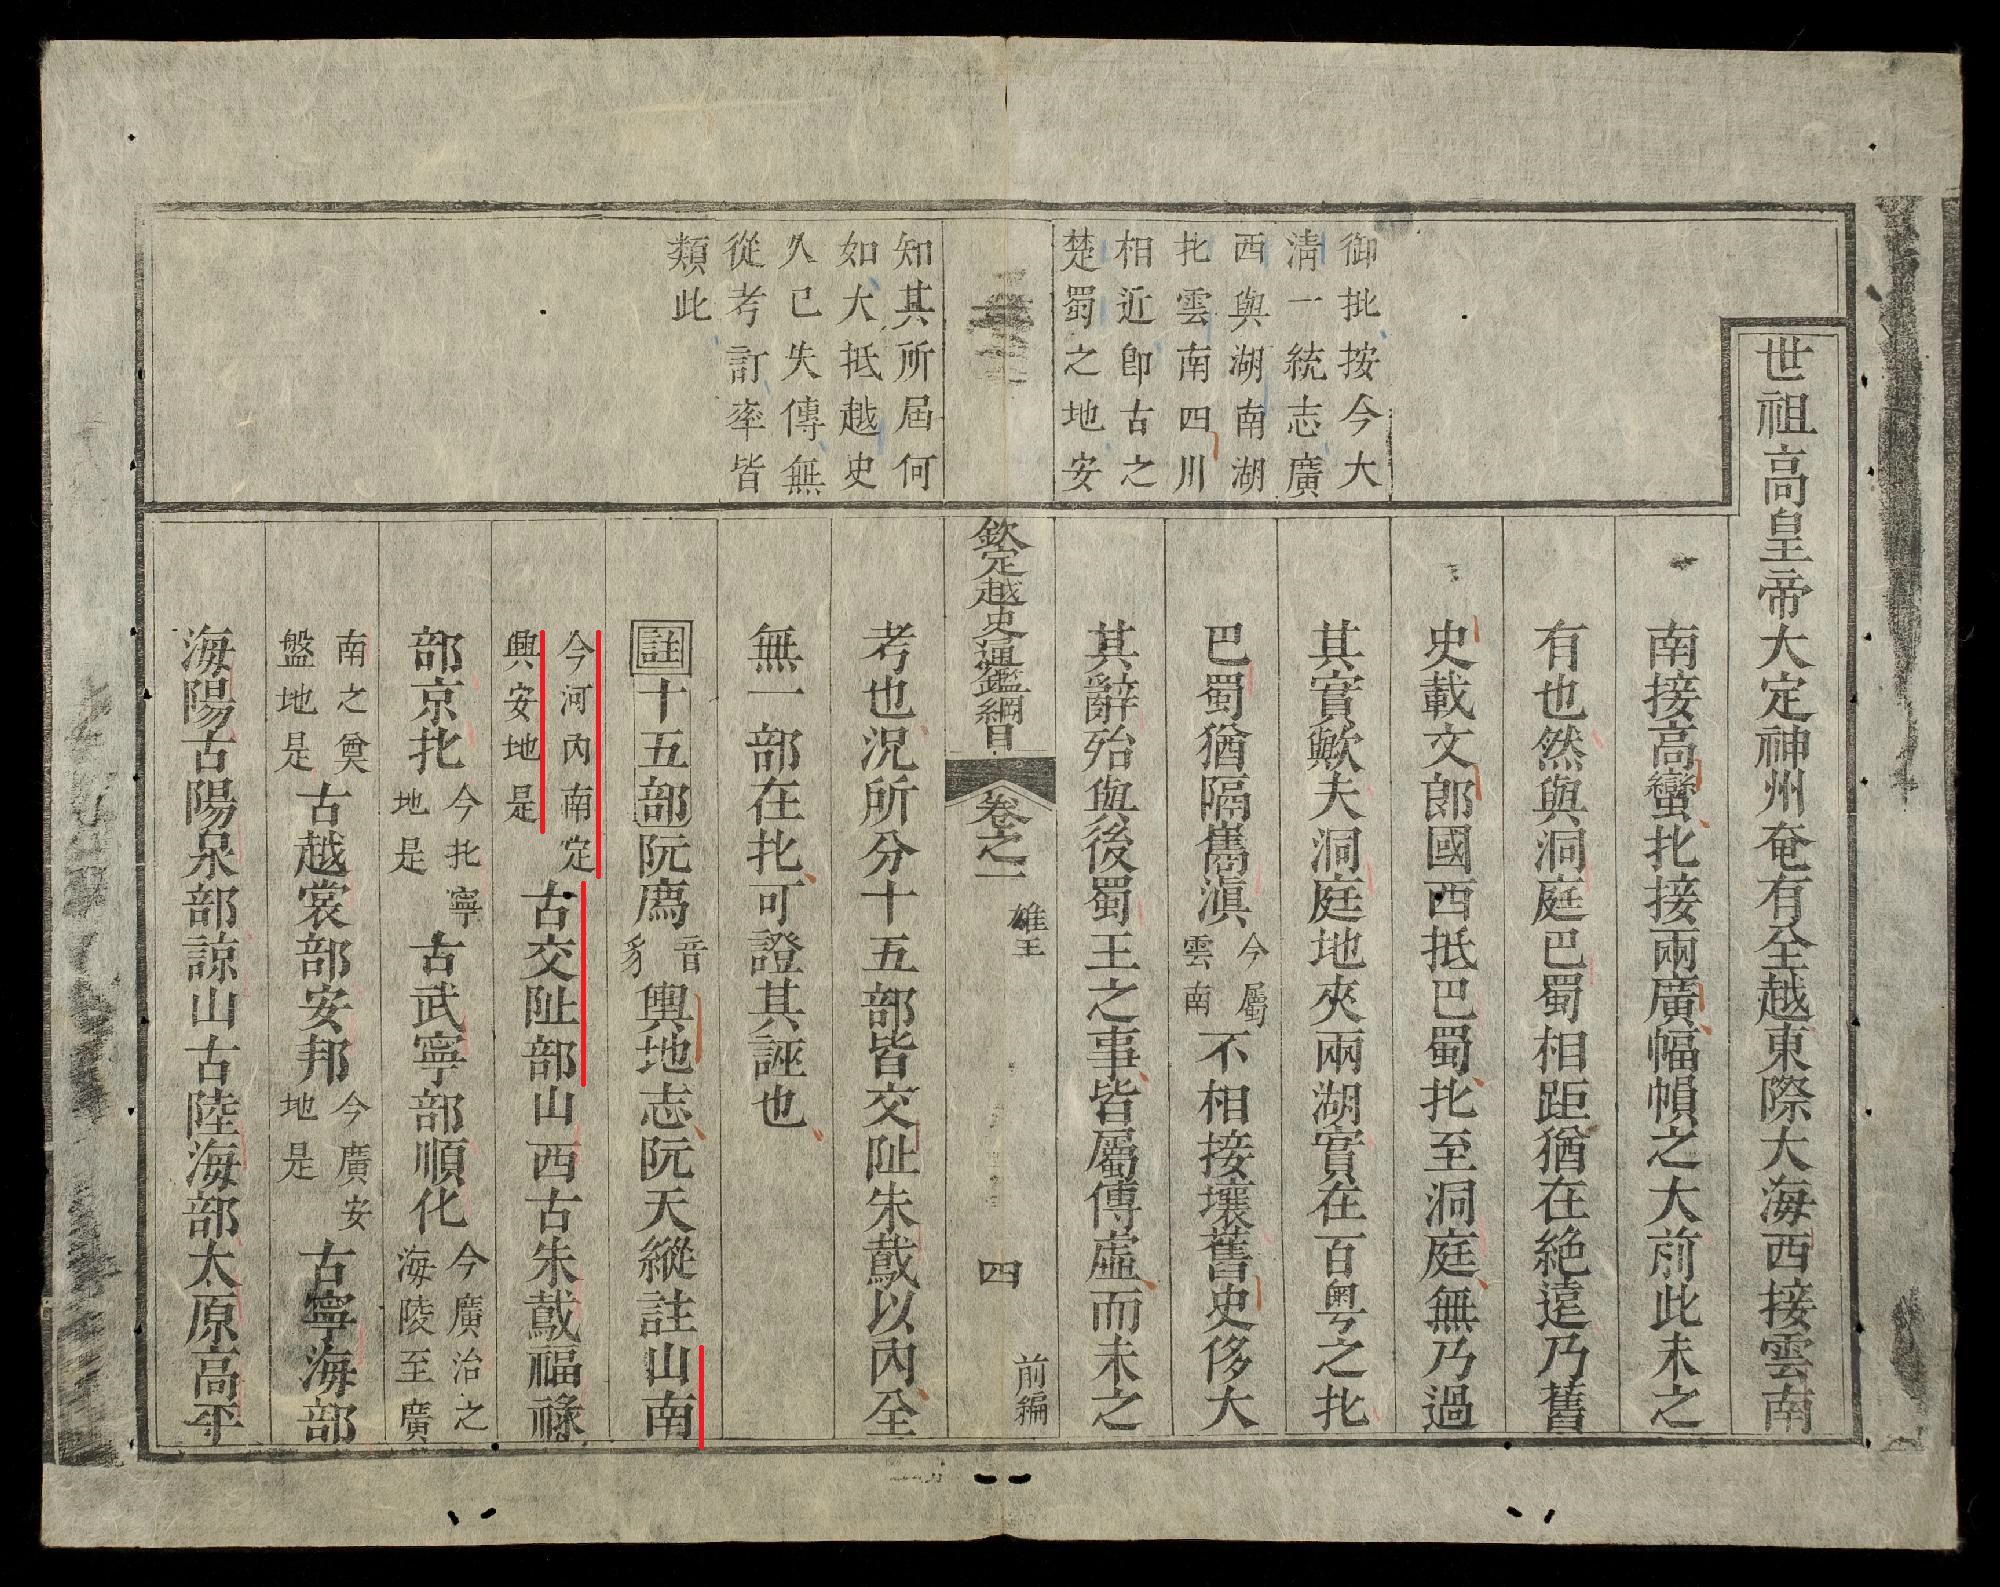 世祖高皇帝大定神州奄有全越東際大海西接雲南
南接高蠻北接兩廣幅幀之大前此未之
有也然與洞庭巴蜀相距猶在絶遠乃舊
史載文郎國西抵巴蜀北至洞庭無乃過
其實歟夫洞庭地夾兩湖實在百粤之北
巴蜀猶隔嶲滇今屬雲南不相接壤舊史侈大
其辭殆與後蜀王之事皆屬傳虛而未之
御批按今大
淸一統志廣
西與湖南湖
北雲南四川
相近卽古之
楚蜀之地安
欽定越史通鑑綱目
卷之一
雄王
四
前編
知其所届何
如大抵越史
久已失傳無
從考訂率皆
類此
考也况所分十五部皆交阯朱鳶以内全
無一部在北可證其誣也
註十五部阮廌音豸輿地志阮天縱註山南
今河内南定興安地是古交阯部山西古朱鳶福祿
部京北今北寧地是古武寧部順化今廣治之海陵至廣
南之奠盤地是古越裳部安邦今廣安地是古寧海部
海陽古陽泉部諒山古陸海部太原高平